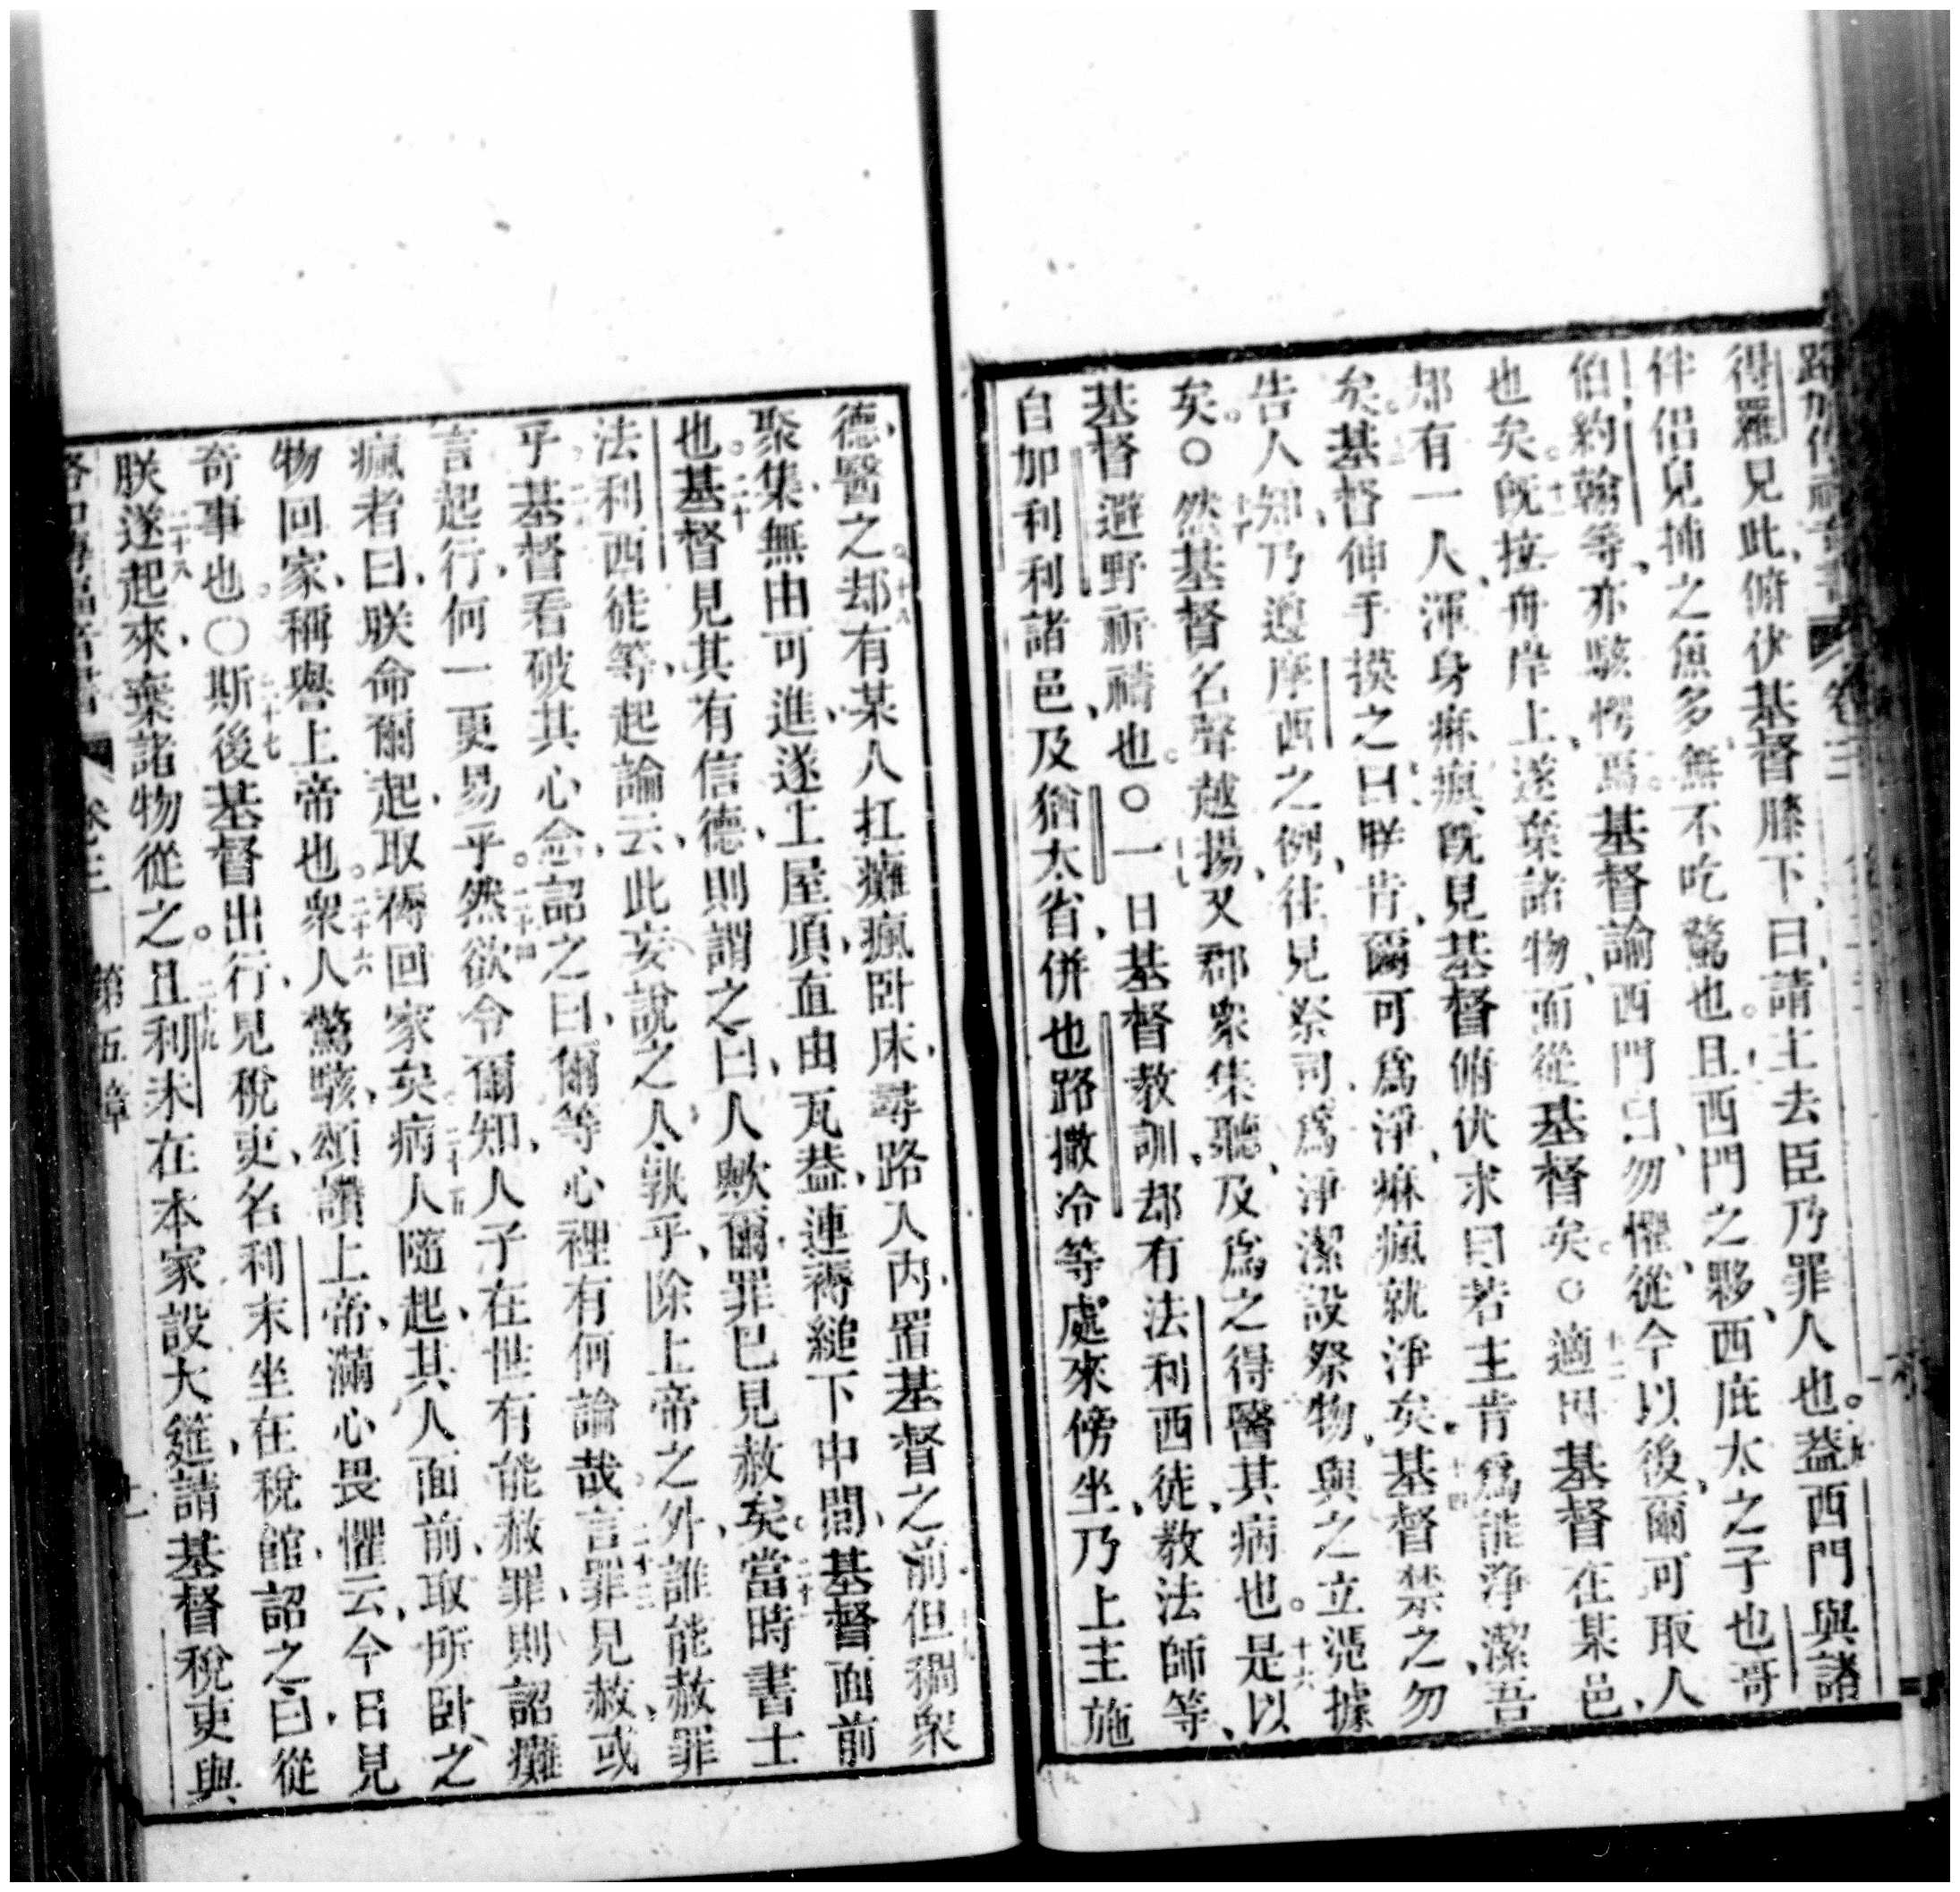 得羅見此俯伏基督膝下曰請主去臣乃罪人也蓋西門與諸
伴侶見捕之魚多無不吃驚也且西門之夥西庇太之子也哥
伯約翰等亦駭愕焉基督諭西門曰勿懼從今以後爾可取人
也矣旣拉舟岸上遂棄諸物而從基督矣○適因基督在某邑
却有一人渾身麻瘋旣見基督俯伏求曰若主肯爲能淨潔吾
矣基督伸手摸之曰朕肯爾可爲淨麻瘋就淨矣基督禁之勿
告人知乃遵摩西之例往見祭司爲淨潔設祭物與之立憑據
矣○然基督名聲越揚又群衆集聽及爲之得醫其病也是以
基督避野祈禱也○一日基督教訓却有法利西徒教法師等
自加利利諸邑及猶太省併也路撒冷等處來傍坐乃上主施
德醫之却有某人扛癱瘋卧床尋路入內置基督之前但稠衆
聚集無由可進遂上屋頂直由瓦葢連褥縋下中間基督面前
也基督見其有信德則謂之曰人歟爾罪已見赦矣當時書士
法利西徒等起論云此妄說之人孰乎除上帝之外誰能赦罪
乎基督看破其心念詔之曰爾等心裡有何論哉言罪見赦或
言起行何一更易乎然欲令爾知人子在世有能赦罪則詔癱
瘋者曰朕命爾起取褥回家矣病人隨起其人面前取所卧之
物回家稱譽上帝也衆人驚駭頌讚上帝滿心畏懼云今日見
奇事也○斯後基督出行見稅吏名利未坐在稅館詔之曰從
朕遂起來棄諸物從之且利未在本家設大筵請基督稅吏與
第五章